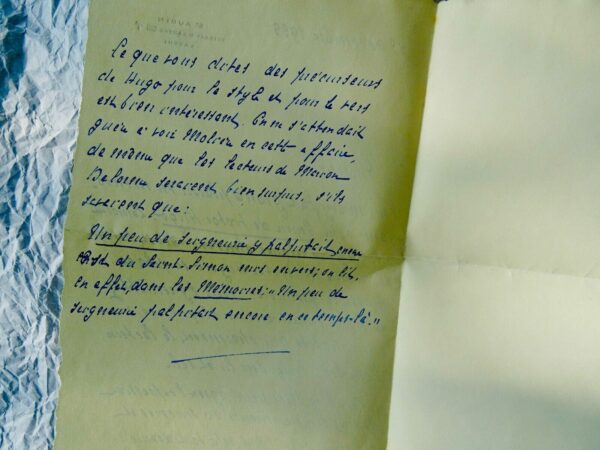 Ce que vous dites des précurseurs
de Hugo pour le style et pour le vers
est bien intéressant. On ne s'attendait
guère à voir Molière en cette affaire,
de même que les lecteurs de Marion
Delorme seraient bien surpris, s'ils
savaient que:
Un peu de seigneurie y palpitait encore
est du Saint-Simon mis en vers; on lit,
en effet, dans les Mémoires: "Un peu de
seigneurie palpitait encore en ce temps-là."